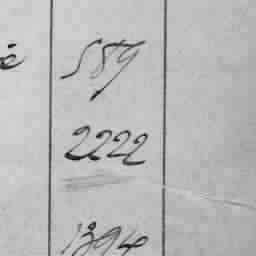 589
2222
1394